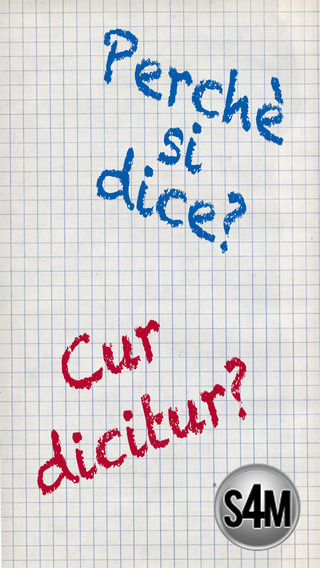 Perchè
si
dice?
Cur
dicitur?
S4M